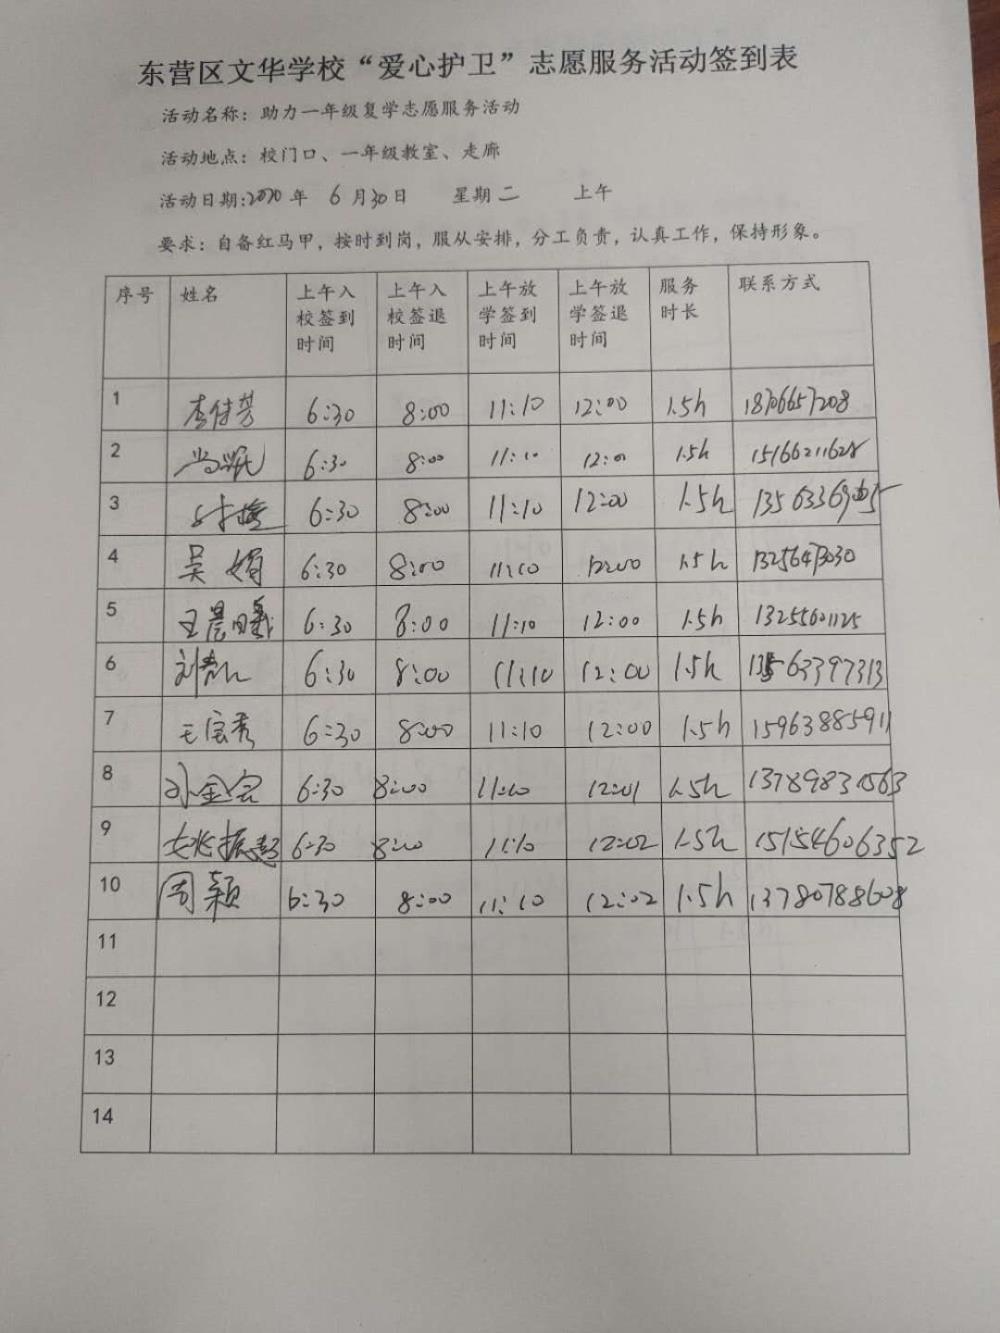 东营区文华学校“爱心护卫”志愿服务活动签到表
活动名称：助力一年级复学志愿服务活动
活动地点：校门口、一年级教室、走廊
活动日期:2020年 6月30日 星期二 上午
要求：自备红马甲，按时到岗，服从安排，分工负责，认真工作，保持形象。
序号 姓名 上午入校签到时间 上午入校签退时间 上午放学签到时间 上午放学签退时间 服务时长 联系方式
1 李付芳 6:30 8:00 11:10 12:00 1.5h 18706657208
2 6:30 8:00 11:10 12:00 1.5h 15166211628
3 6:30 8:00 11:10 12:00 1.5h
4 吴娟 6:30 8:00 11:10 12:00 1.5h 13256473030
5 王晨曦 6:30 8:00 11:10 12:00 1.5h 13255601125
6 6:30 8:00 11:10 12:00 1.5h 13563397313
7 王宝秀 6:30 8:00 11:10 12:00 1.5h 15963885911
8 孙金宝 6:30 8:00 11:10 12:01 1.5h 13789831563
9 姚振超 6:30 8:00 11:10 12:02 1.5h 15154606352
10 周颖 6:30 8:00 11:10 12:02 1.5h 13780788608
11
12
13
14